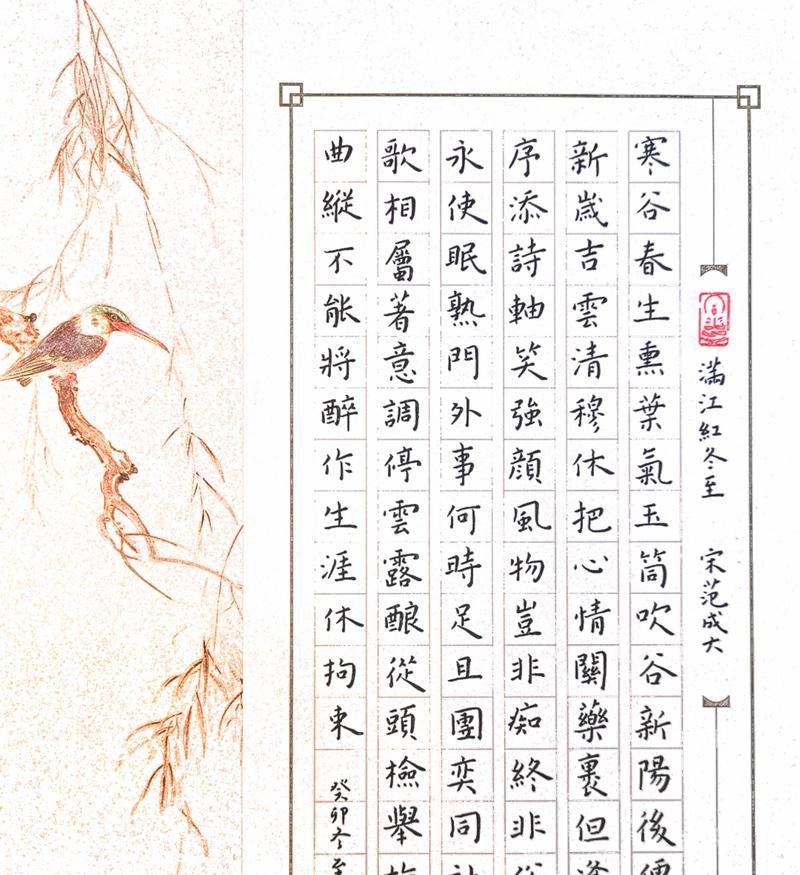 滿江紅冬至 宋范成大
寒谷春生熏葉氣玉筒吹谷新陽後
新歲吉雲清穆休把心情關藥裹但
序添詩軸笑強顏風物豈非痴終非
永使眠熟門外事何時足且團奕同
歌相屬著意調停雲露酿從頭檢舉
曲縱不能將醉作生涯休拘束
癸卯冬至